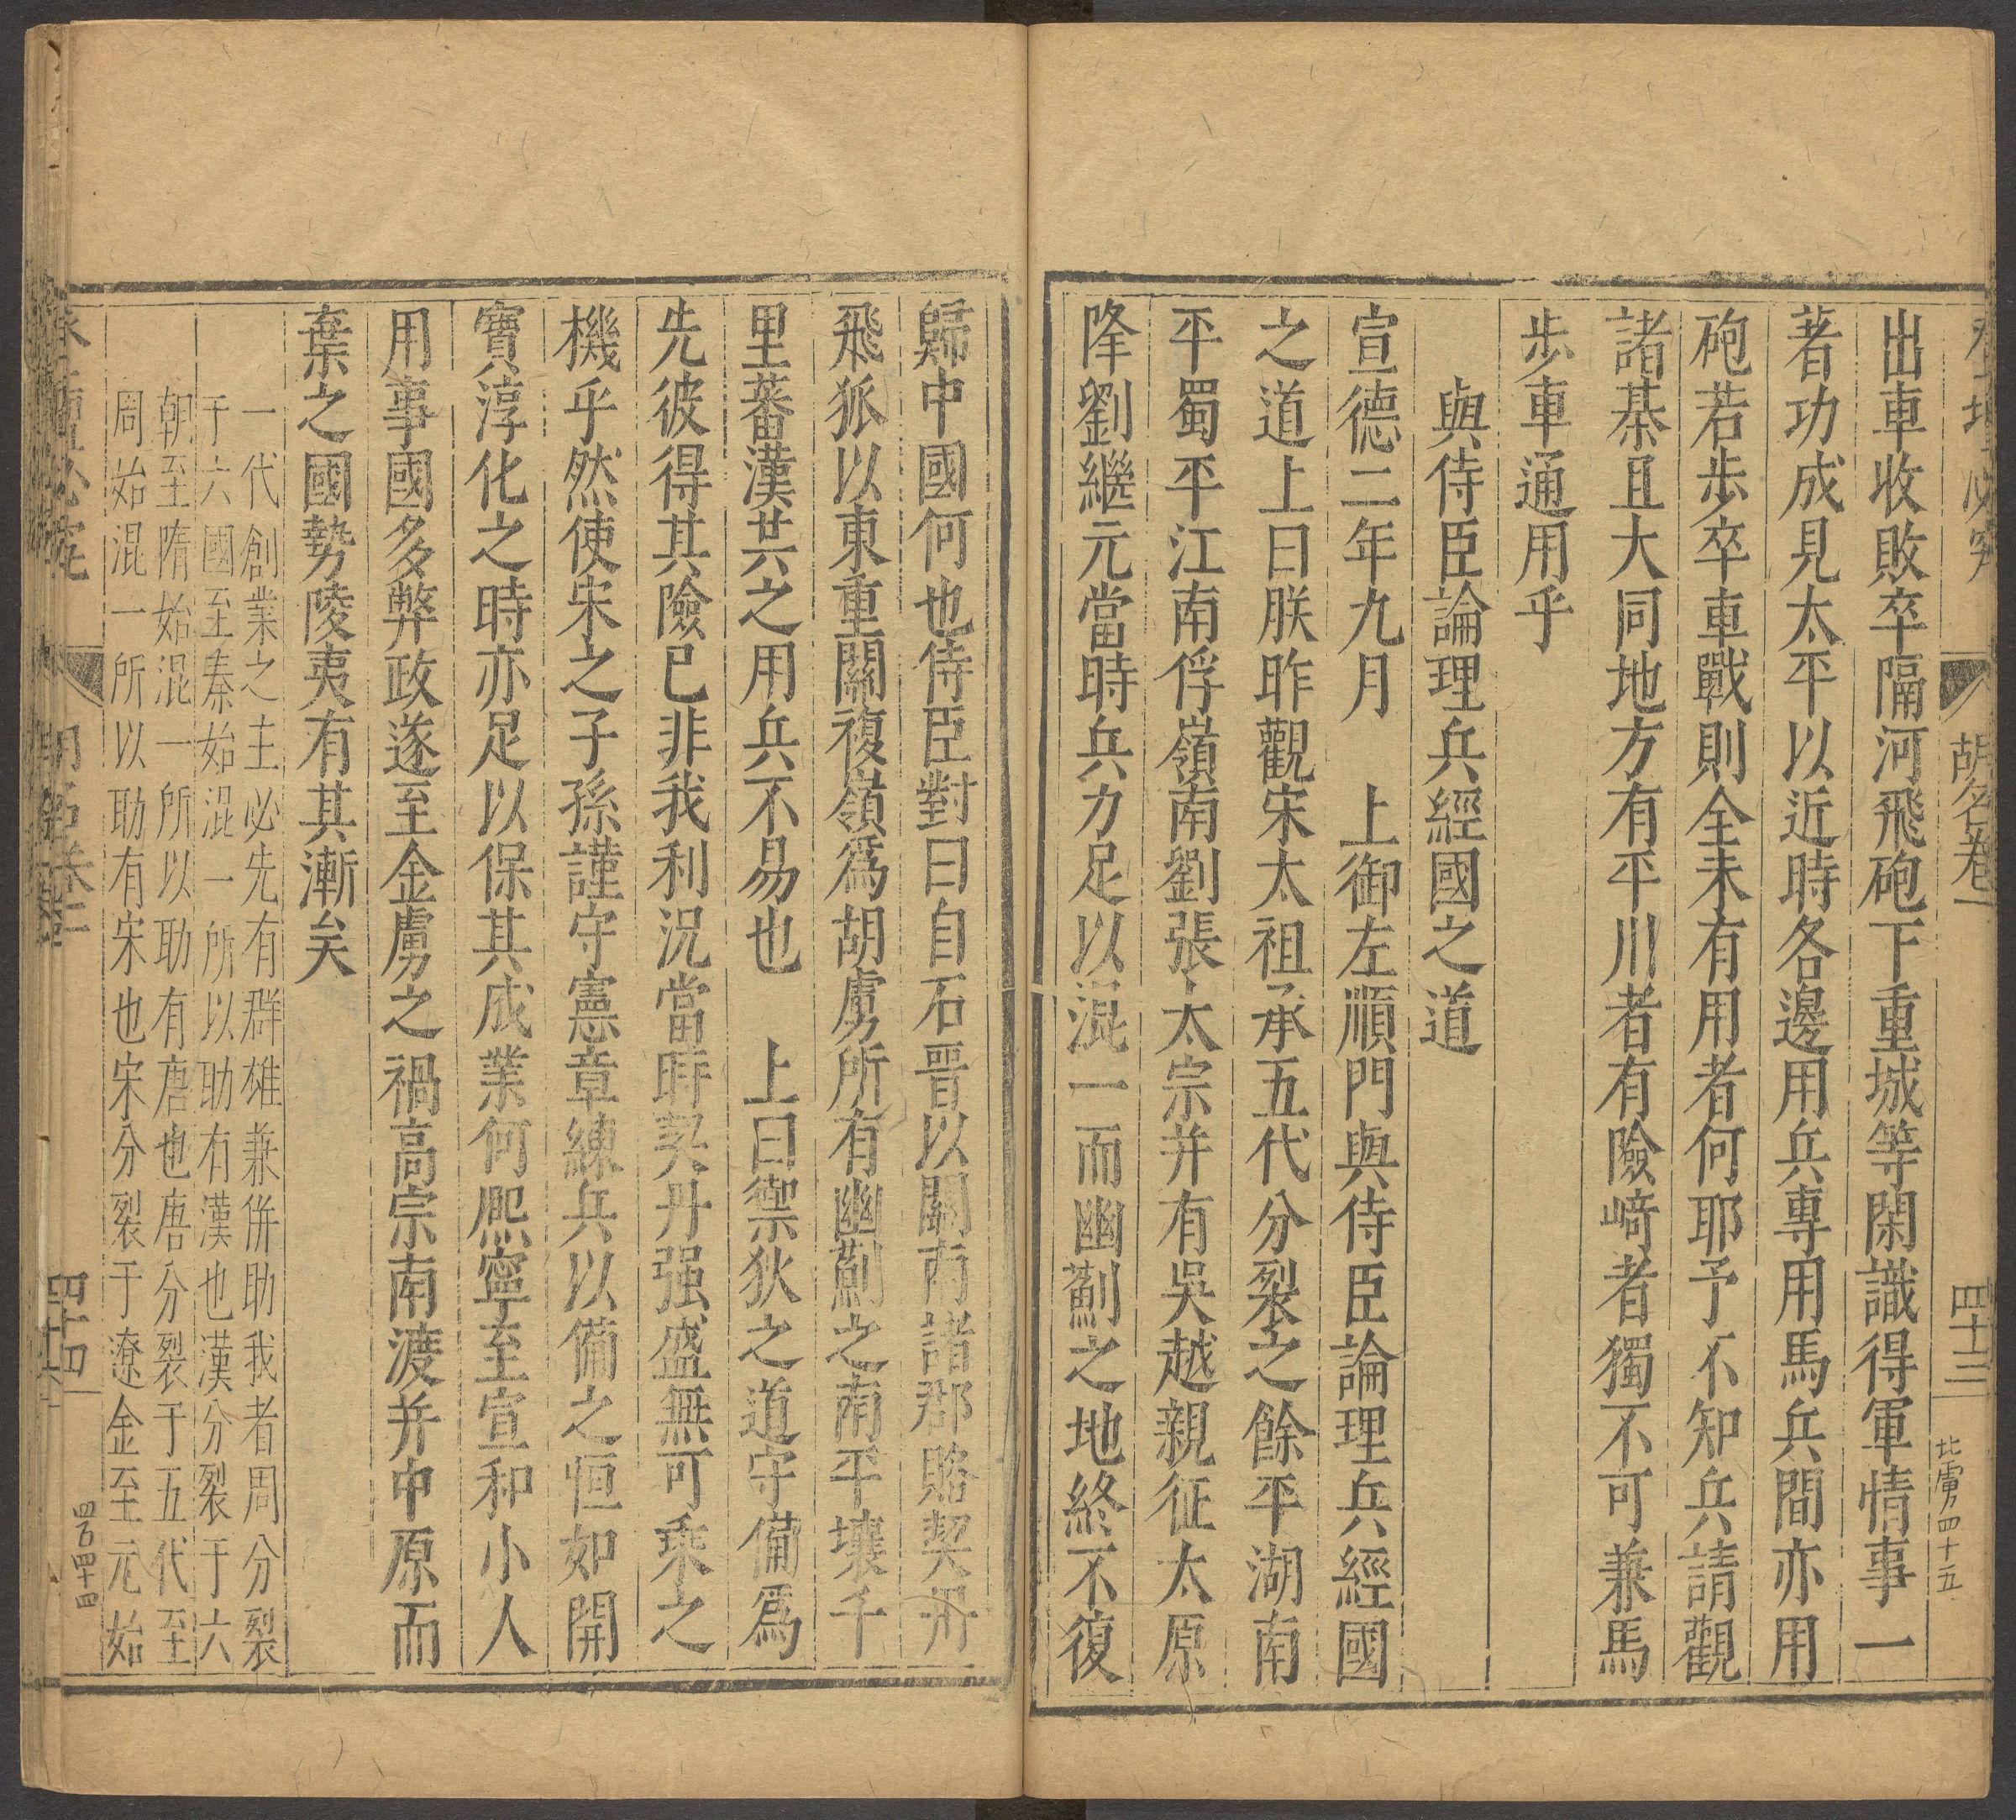 胡名卷一
四十三
北虜四十五
出車收敗卒隔河飛砲下重城等閑識得軍情事一
著功成見太平以近時各邊用兵專用馬兵間亦用
砲若步卒車戰則全未有用者何耶予不知兵請觀
諸棊且大同地方有平川者有險崎者獨不可兼馬
步車通用乎
與侍臣論理兵經國之道
宣德二年九月　上御左順門與侍臣論理兵經國
之道上曰朕昨觀宋太祖承五代分裂之餘平湖南
平蜀平江南俘嶺南劉張太宗并有吳越親征太原
降劉繼元當時兵力足以混一而幽薊之地終不復
歸中國何也侍臣對曰自石晉以關南諸郡賂契丹
飛狐以東重關複嶺爲胡虜所有幽薊之南平壤千
里蕃漢共之用兵不易也　上曰禦狄之道守備爲
先彼得其險已非我利況當時契丹强盛無可乘之
機乎然使宋之子孫謹守憲章練兵以備之恒如開
寶淳化之時亦足以保其成業何熈寧至宣和小人
用事國多弊政遂至金虜之禍高宗南渡并中原而
棄之國勢陵夷有其漸矣
一代創業之主必先有群雄兼併助我者周分裂
于六國至秦始混一所以助有漢也漢分裂于六
朝至隋始混一所以助有唐也唐分裂于五代至
周始混一所以助有宋也宋分裂于遼金至元始
四十四
四百四十四